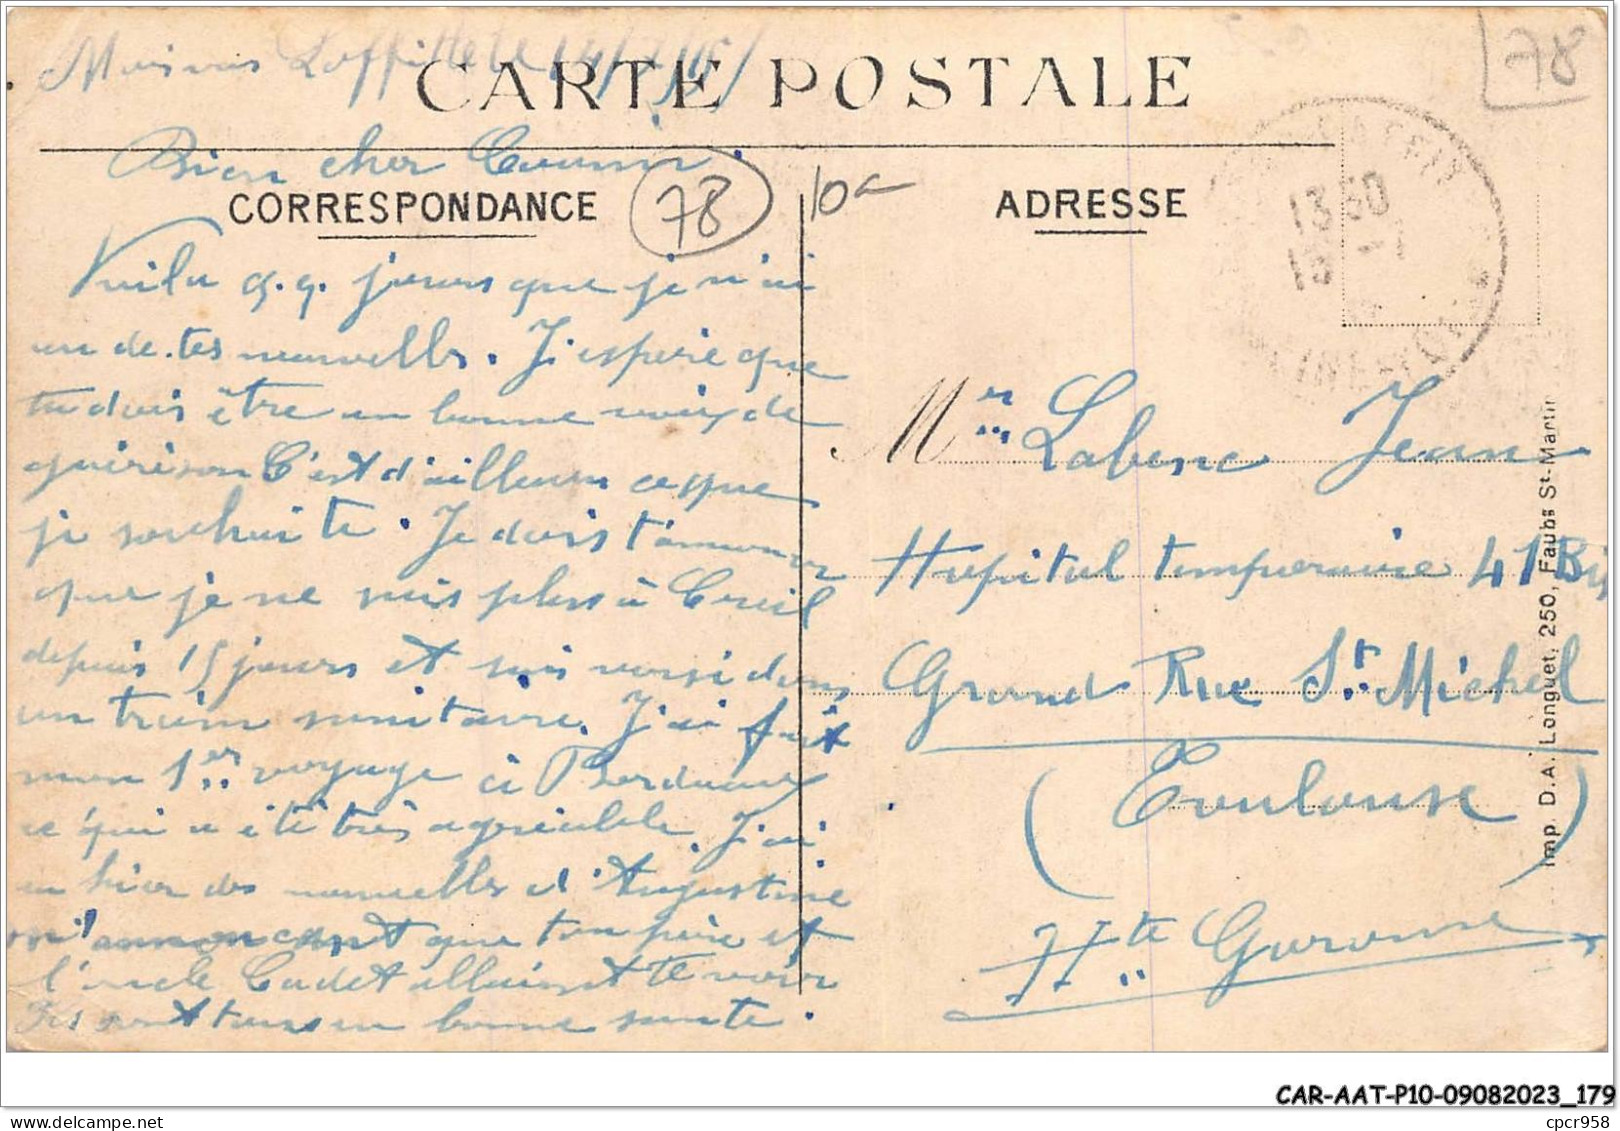 Maisons Laffitte le 14/7/15
CARTE POSTALE
78
Bien cher Cousin.
CORRESPONDANCE
78
10
ADRESSE
13 30
15 -7
Voila q.q. jours que je n'ai
eu de tes nouvelles. J'espère que
tu dois être en bonne voix de
guérison C'est d'ailleurs ce que
je souhaite. Je dois t'annoncer
que je ne suis plus à Creil
depuis 15 jours et suis versé dans
un train sanitaire. J'ai fait
mon 1er voyage à Bordeaux
ce qui a été très agréable. J'ai
eu hier des nouvelles d'Augustine
m'annoncant que ton père et
l'oncle Cadet allaient te voir
Ils sont tous en bonne sante.
Mr Labesc Jean
Hopital temporaire 41 Bis
Grand Rue St. Michel
(Toulouse)
Hte Garonne
Imp. D.A. Longuet, 250, Faubg St-Martin
CAR-AAT-P10-09082023_179
cpcr958